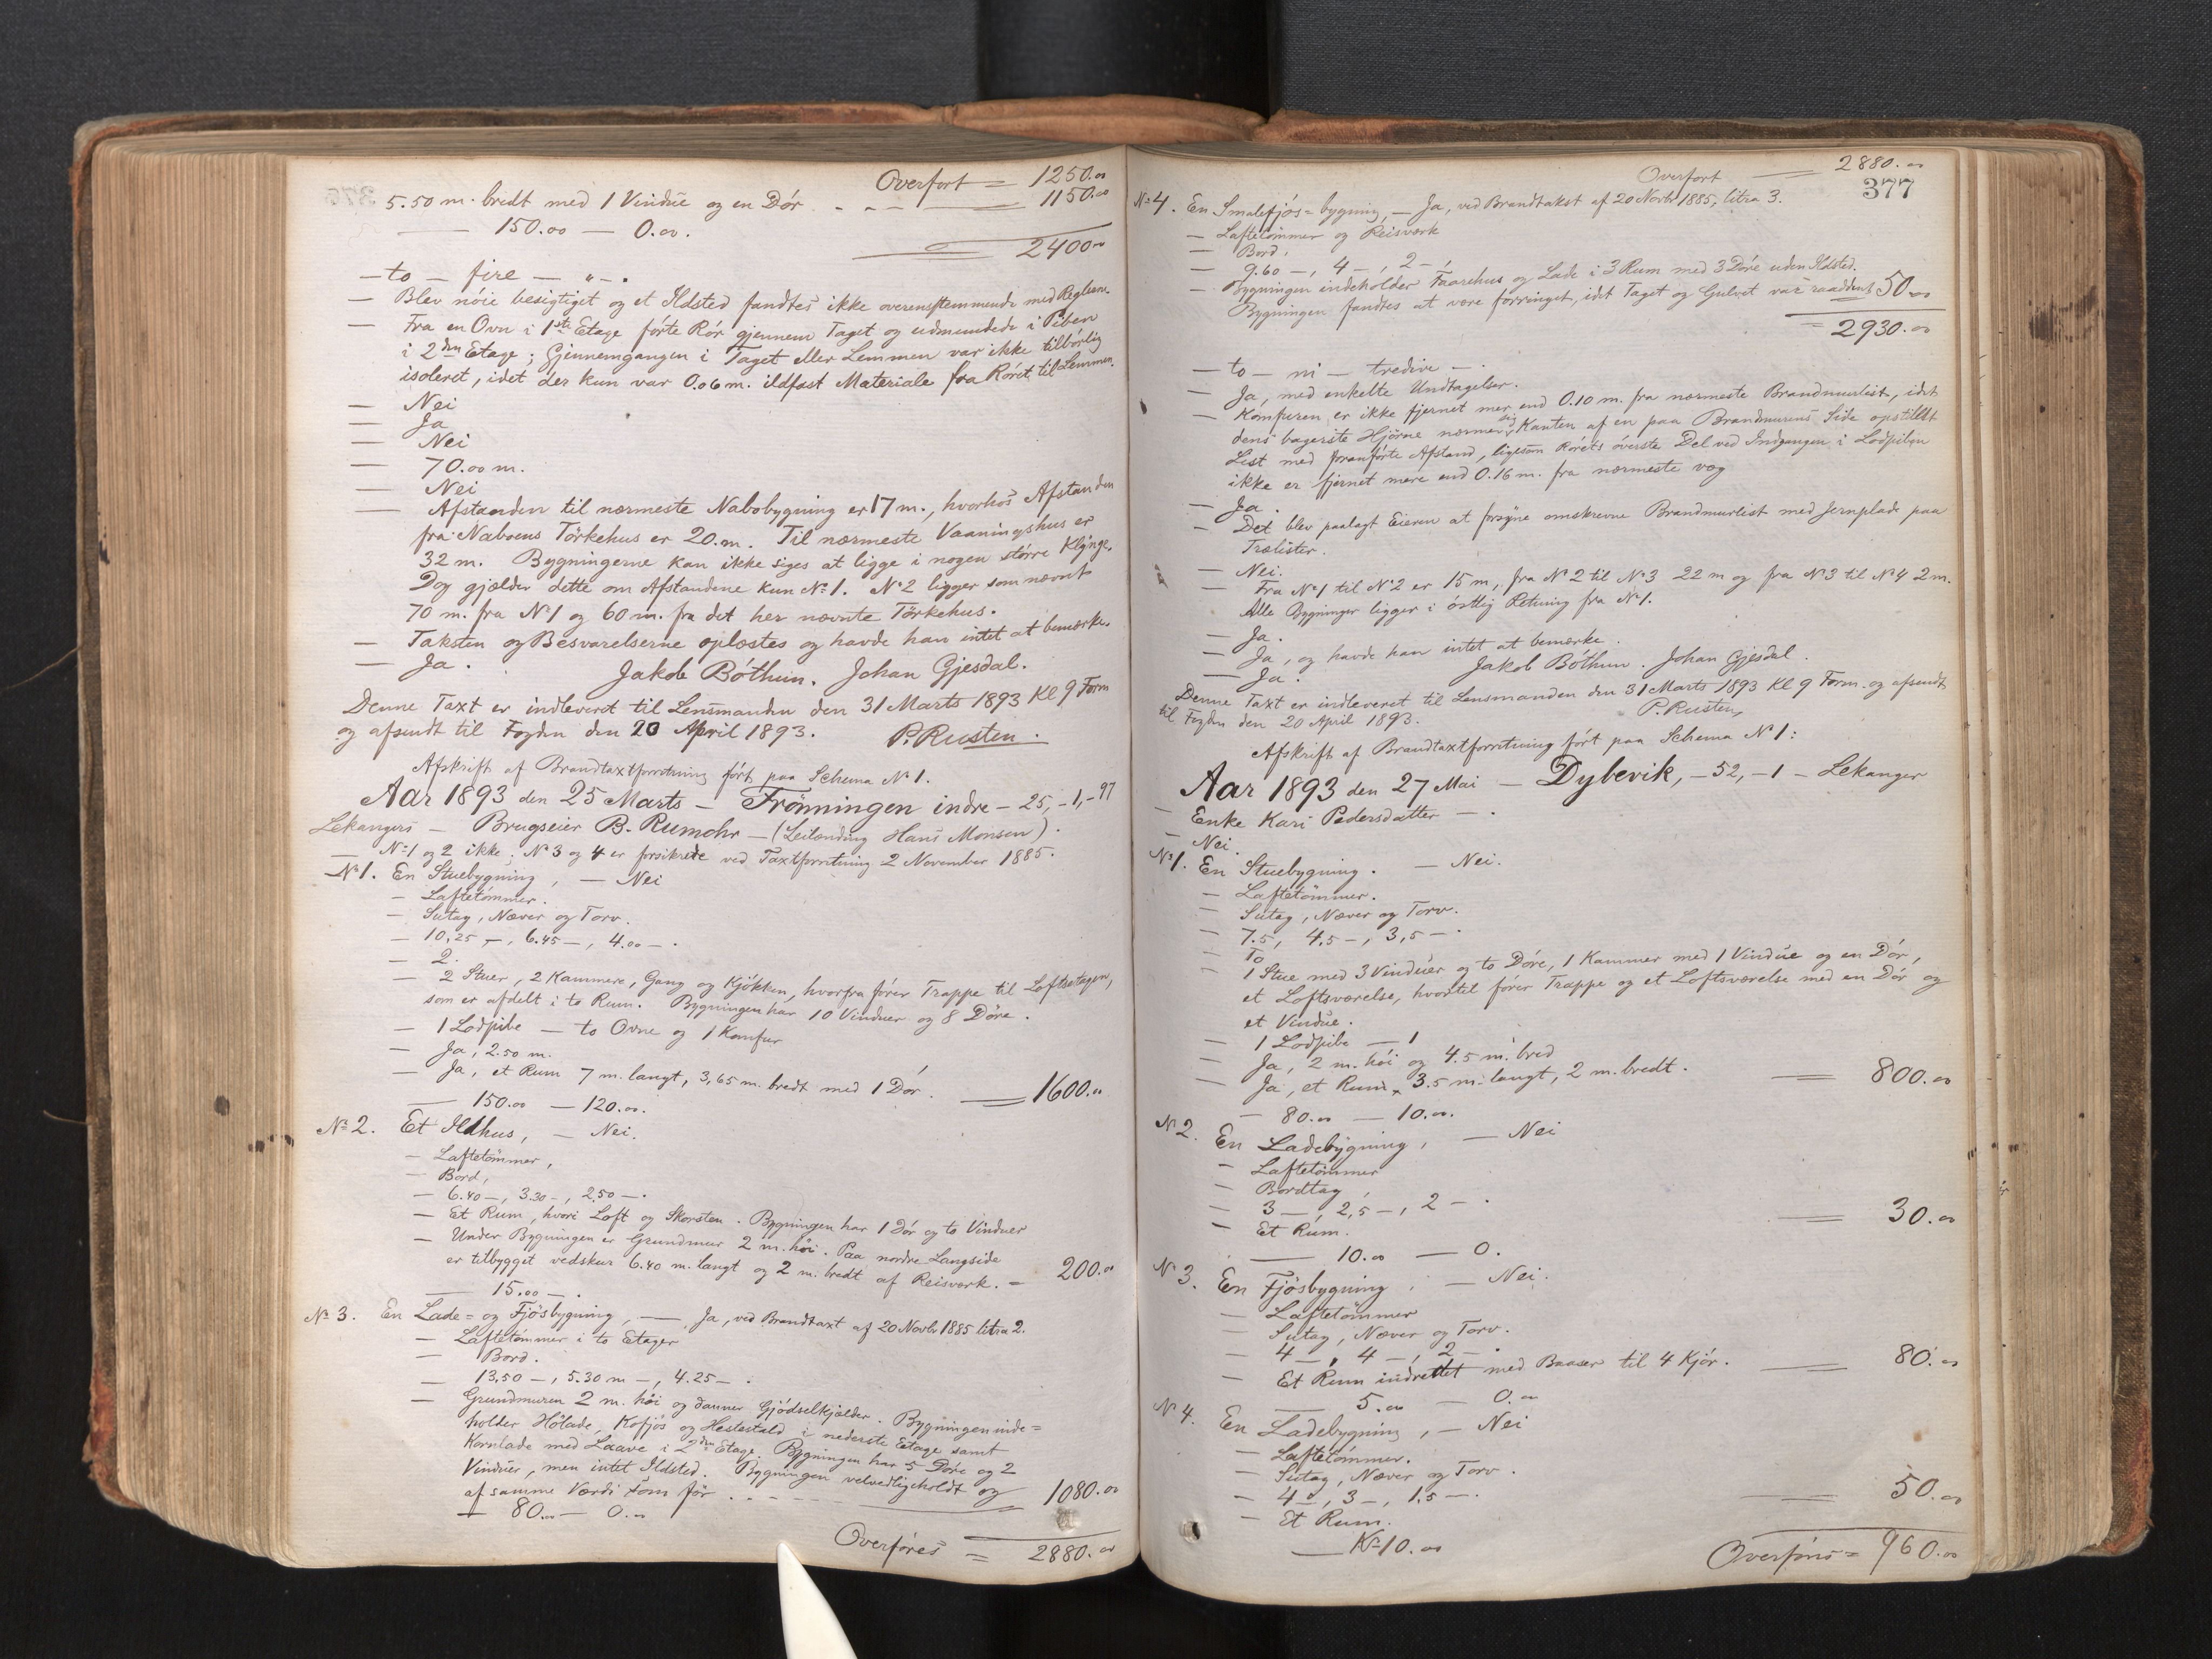 Overført = 1250.00
5.50 m. bredt med 1 Vindue og en Dør - - - 1150.00
— 150.00 — 0.00.
2400.00
— to — fire — " — .
— Blev nøie besigtiget og et Ildsted fandtes ikke overensstemmende med Reglem.
— Fra en Ovn i 1ste Etage førte Rør gjennem Taget og udmundede i Piben
i 2den Etage; Gjennemgangen i Taget eller Lemmen var ikke tilbørlig
isoleret, idet der kun var 0.06 m. ildfast Materiale fra Røret til Lemmen.
— Nei
— Ja
— Nei
— 70.00 m.
— Nei
— Afstanden til nærmeste Nabobygning er 17 m., hvorhos Afstanden
fra Naboens Tørkehus er 20.m. Til nærmeste Vaaningshus er
32 m. Bygningerne kan ikke siges at ligge i nogen større Klynge.
Dog gjælder dette om Afstandene kun No 1. No 2 ligger som nævnt
70 m. fra No 1 og 60 m. fra det her nævnte Tørkehus.
— Taksten og Besvarelserne oplæstes og havde han intet at bemærke.
— Ja. Jakob Bøthun. Johan Gjesdal.
Denne Taxt er indleveret til Lensmanden den 31 Marts 1893 Kl 9 Form
og afsendt til Fogden den 20 April 1893. P. Rusten.
Afskrift af Brandtaxtforretning ført paa Schema No 1.
Aar 1893 den 25 Marts — Frønningen indre — 25, — 1, — 97
Lekanger — Brugseier B. Rumohr — (Leilænding Hans Monsen).
— No 1 og 2 ikke; No 3 og 4 er forsikrede ved Taxtforretning 2 November 1885.
No 1. En Stuebygning, — Nei
— Laftetømmer.
— Sutag, Næver og Torv.
— 10,25 —, 6.45 —, 4.00 — .
— 2.
— 2 Stuer, 2 Kammere, Gang og Kjøkken, hvorfra fører Trappe til Loftsetagen,
som er afdelt i to Rum. Bygningen har 10 Vinduer og 8 Døre.
— 1 Lodpibe — to Ovne og 1 Komfur
— Ja, 2.50 m.
— Ja, et Rum 7 m. langt, 3,65 m. bredt med 1 Dør. — 1600.00
— 150.00 — 120.00.
No 2. Et Ildhus, — Nei.
— Laftetømmer,
— Bord,
— 6.40 —, 3.30 —, 2.50 — .
— Et Rum, hvori Loft og Skorsten. Bygningen har 1 Dør og to Vinduer
— Under Bygningen er Grundmur 2 m. høi. Paa nordre Langside
er tilbygget vedskur 6.40 m. langt og 2 m. bredt af Reisværk. — 200.00
— 15.00 — .
No 3. En Lade= og Fjøsbygning, — Ja, ved Brandtaxt af 20 Novbr 1885 litra 2.
— Laftetømmer i to Etager
— Bord.
— 13.50 —, 5.30 m —, 4.25 — .
— Grundmuren 2 m. høi og danner Gjødselkjælder. Bygningen inde=
holder Hølade, Kofjøs og Hestestald i nederste Etage samt
Kornlade med Laave i 2den Etage. Bygningen har 5 Døre og 2
Vinduer, men intet Ildsted. Bygningen velvedligeholdt og
af samme Værdi som før. - - - 1080.00
— 80.00 — 0.00
Overføres = 2880.00
Overført — 2880.00
377
No 4. En Smalefjøs=bygning, — Ja, ved Brandtakst af 20 Novbr 1885, litra 3.
— Laftetømmer og Reisværk
— Bord.
— 9.60 —, 4 —, 2 —,
— Bygningen indeholder Faarehus og Lade i 3 Rum med 3 Døre uden Ildsted.
Bygningen fandtes at være forringet, idet Taget og Gulvet var raaddent 50.00
= 2930.00
— to — ni — tredive — .
— Ja, med enkelte Undtagelser.
— Komfuren er ikke fjernet mer end 0.10 m. fra nærmeste Brandmurlist, idet
dens bagerste Hjørne nærmer sig Kanten af en paa Brandmurens Side opstillet
List med foranførte Afstand, ligesom Rørets øverste Del ved Indgangen i Lodpiben
ikke er fjernet mere end 0.16 m. fra nærmeste væg
— Ja.
— Det blev paalagt Eieren at forsyne omskrevne Brandmurlist med Jernplade paa
Trælister.
— Nei.
— Fra No 1 til No 2 er 15 m, fra No 2 til No 3 22 m og fra No 3 til No 4 2 m.
Alle Bygninger ligger i østlig Retning fra No 1.
— Ja.
— Ja, og havde han intet at bemærke.
— Ja. Jakob Bøthun. Johan Gjesdal.
Denne Taxt er indleveret til Lensmanden den 31 Marts 1893 Kl 9 Form. og afsendt
til Fogden den 20 April 1893. P. Rusten
Afskrift af Brandtaxtforretning ført paa Schema No 1:
Aar 1893 den 27 Mai — Dybevik, — 52, — 1 — Lekanger
— Enke Kari Pedersdatter — .
— Nei.
No 1. En Stuebygning. — Nei.
— Laftetømmer.
— Sutag, Næver og Torv.
— 7.5, 4.5 —, 3,5 — .
— To
— 1 Stue med 3 Vinduer og to Døre, 1 Kammer med 1 Vindue og en Dør,
et Loftsværelse, hvortil fører Trappe og et Loftsværelse med en Dør og
et Vindue.
— 1 Lodpibe — 1
— Ja, 2 m. høi og 4.5 m. bred
— Ja, et Rum, 3.5 m. langt, 2 m. bredt. — 800.00
— 80.00 — 10.00.
No 2. En Ladebygning, — Nei
— Laftetømmer
— Bordtag,
— 3 —, 2,5 —, 2 — .
— Et Rum. — 30.00
— 10.00 — 0.
No 3. En Fjøsbygning. — Nei.
— Laftetømmer
— Sutag, Næver og Torv.
— 4 —, 4 —, 2 — .
— Et Rum indrettet med Baaser til 4 Kjør. — 80.00
— 5.00 — 0.00
No 4. En Ladebygning, — Nei
— Laftetømmer.
— Sutag, Næver og Torv.
— 4 —, 3 —, 1,5 — .
— Et Rum. — 50.00
— Kr 10.00
Overføres = 960.00